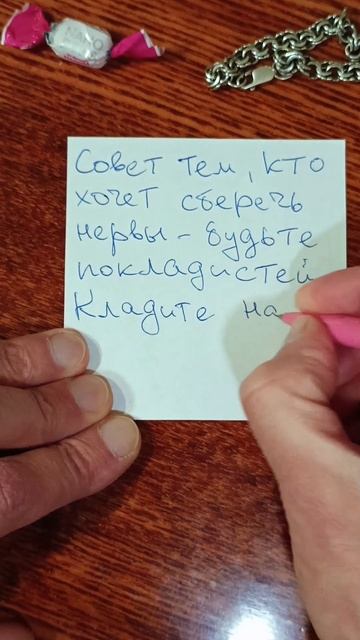 Совет тем, кто
хочет сберечь
нервы - будьте
покладистей
Кладите на